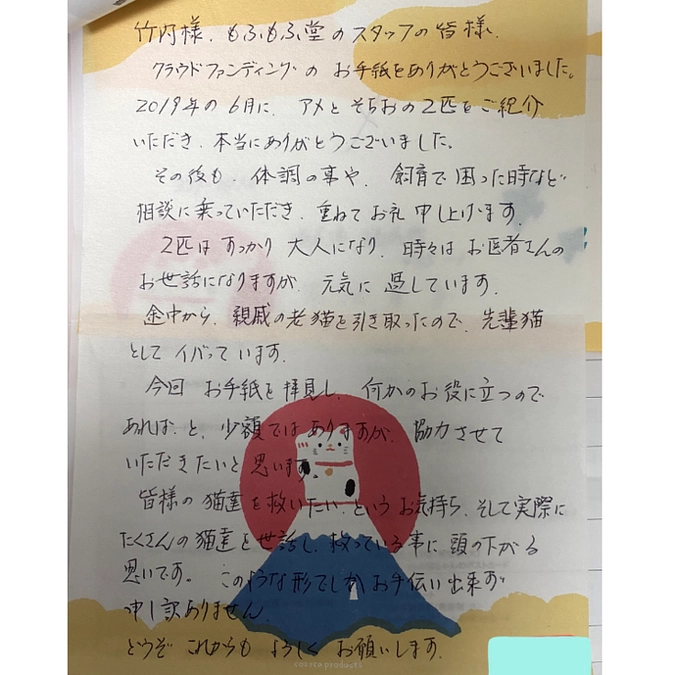 竹内様、もふもふ堂のスタッフの皆様、
クラウドファンディングの お手紙をありがとうございました。
2019年の6月に、アメとそらおの2匹をご紹介
いただき、本当にありがとうございました。
その後も、体調の事や、飼育で困った時など
相談に乗っていただき、重ねてお礼申し上げます。
2匹はすっかり大人になり、時々はお医者さんの
お世話になりますが、元気に過しています。
途中から、親戚の老猫を引き取ったので、先輩猫
としてイバっています。
今回 お手紙を拝見し、何かのお役に立つので
あれば、と、少額ではありますが、協力させて
いただきたいと思います。
皆様の猫達を救いたい、というお気持ち、そして実際に
たくさんの猫達を世話し、救っている事に頭の下がる
思いです。このような形でしかお手伝い出来ず
申し訳ありません。
どうぞこれからもよろしくお願いします。
cozyca products